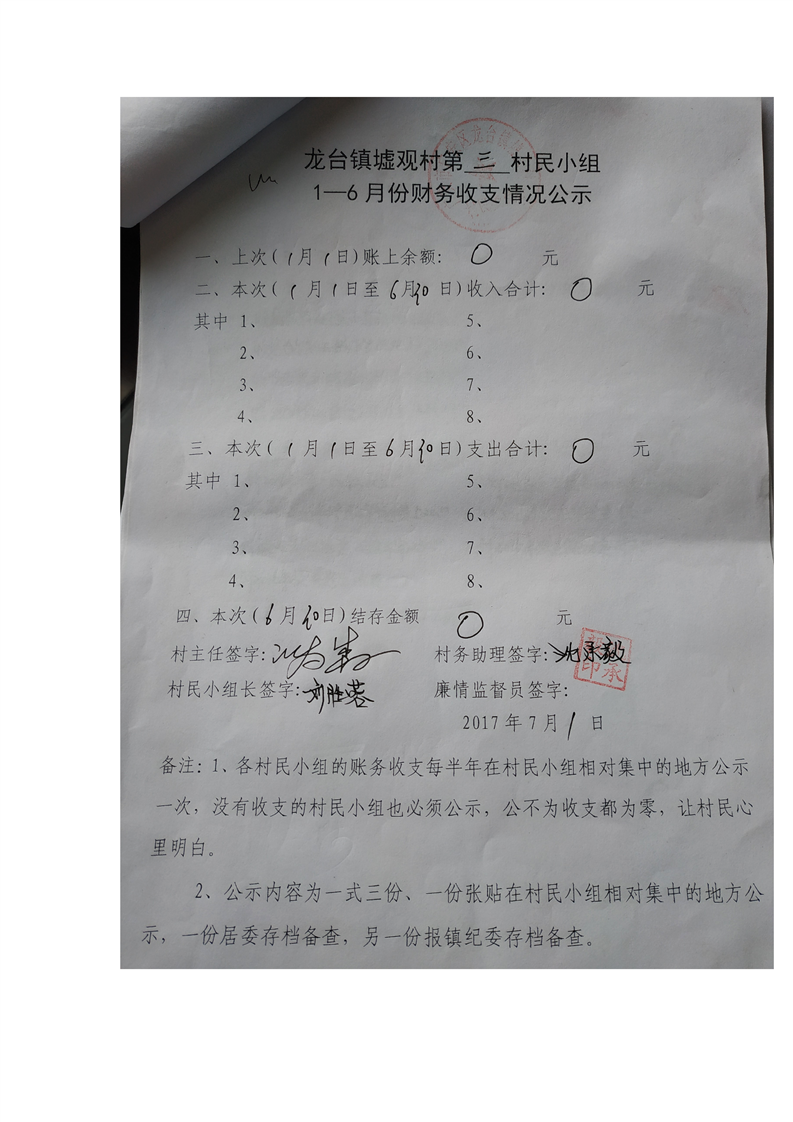 龙台镇墟观村第 三 村民小组
1—6月份财务收支情况公示
一、上次(1月1日)账上余额: 0 元
二、本次(1月1日至6月30日)收入合计: 0 元
其中 1、 5、
2、 6、
3、 7、
4、 8、
三、本次(1月1日至6月30日)支出合计: 0 元
其中 1、 5、
2、 6、
3、 7、
4、 8、
四、本次(6月30日)结存金额 0 元
村主任签字: 村务助理签字:
村民小组长签字:刘胜蓉 廉情监督员签字:
2017年7月1日
备注:1、各村民小组的账务收支每半年在村民小组相对集中的地方公示
一次，没有收支的村民小组也必须公示，公不为收支都为零，让村民心
里明白。
2、公示内容为一式三份、一份张贴在村民小组相对集中的地方公
示，一份居委存档备查，另一份报镇纪委存档备查。